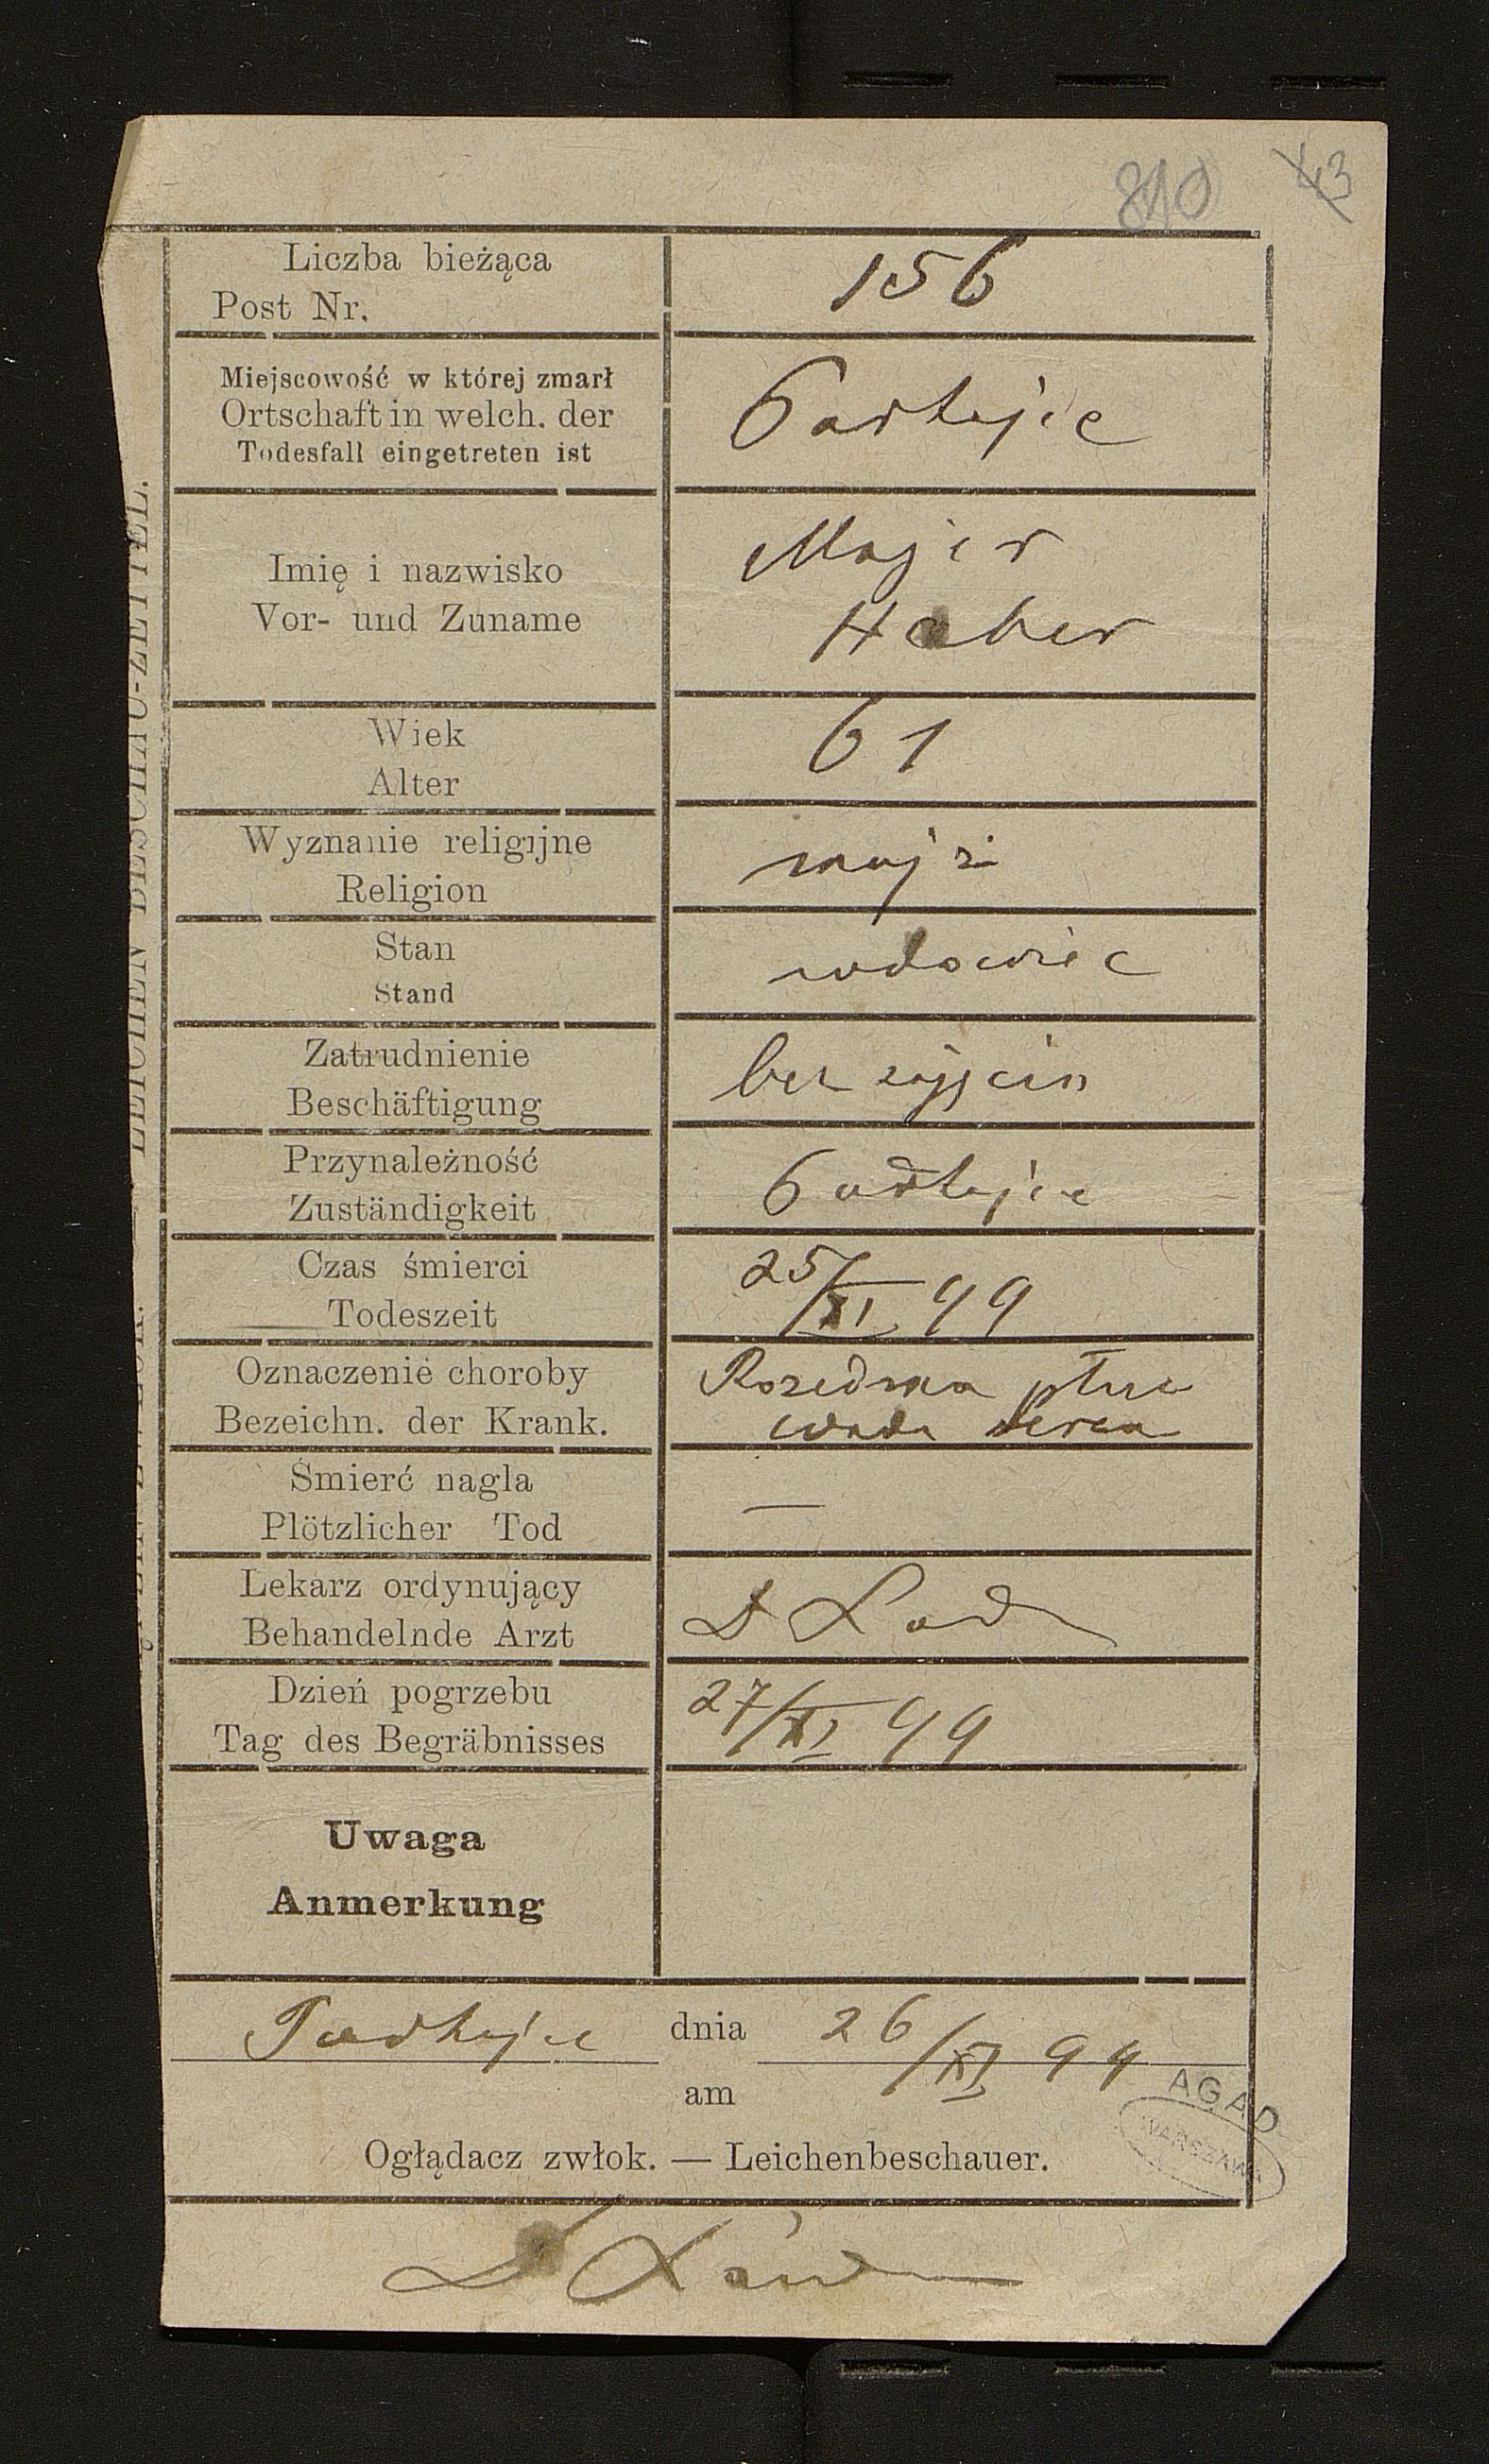 810 43
Liczba bieżąca
Post Nr.
156
Miejscowość w której zmarł
Ortschaft in welch. der
Todesfall eingetreten ist
Podhajce
Imię i nazwisko
Vor- und Zuname
Majer
Haber
Wiek
Alter
61
Wyznanie religijne
Religion
mojż
Stan
Stand
wdowiec
Zatrudnienie
Beschäftigung
bez zajęcia
Przynależność
Zuständigkeit
Podhajce
Czas śmierci
Todeszeit
25/XI 99
Oznaczenie choroby
Bezeichn. der Krank.
Rozedma płuc
wada serca
Śmierć nagla
Plötzlicher Tod
—
Lekarz ordynujący
Behandelnde Arzt
D
Dzień pogrzebu
Tag des Begräbnisses
27/XI 99
Uwaga
Anmerkung
Podhajce dnia 26/XI 99
am
Oglądacz zwłok. — Leichenbeschauer.
D
AGAD
WARSZAWA
LEICHEN BESCHAU-ZETTEL.